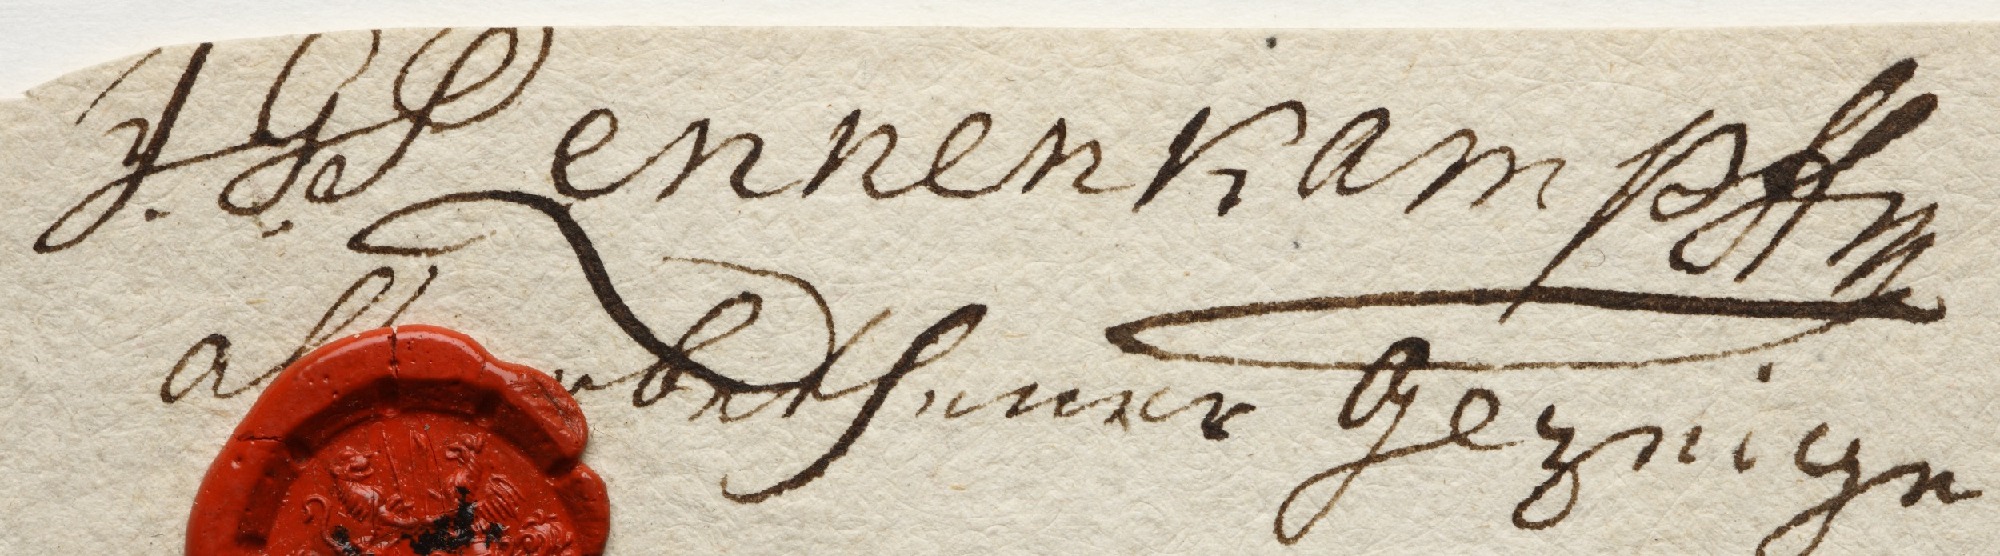 J. G. Rennenkampff
als erbethener Gezeuge